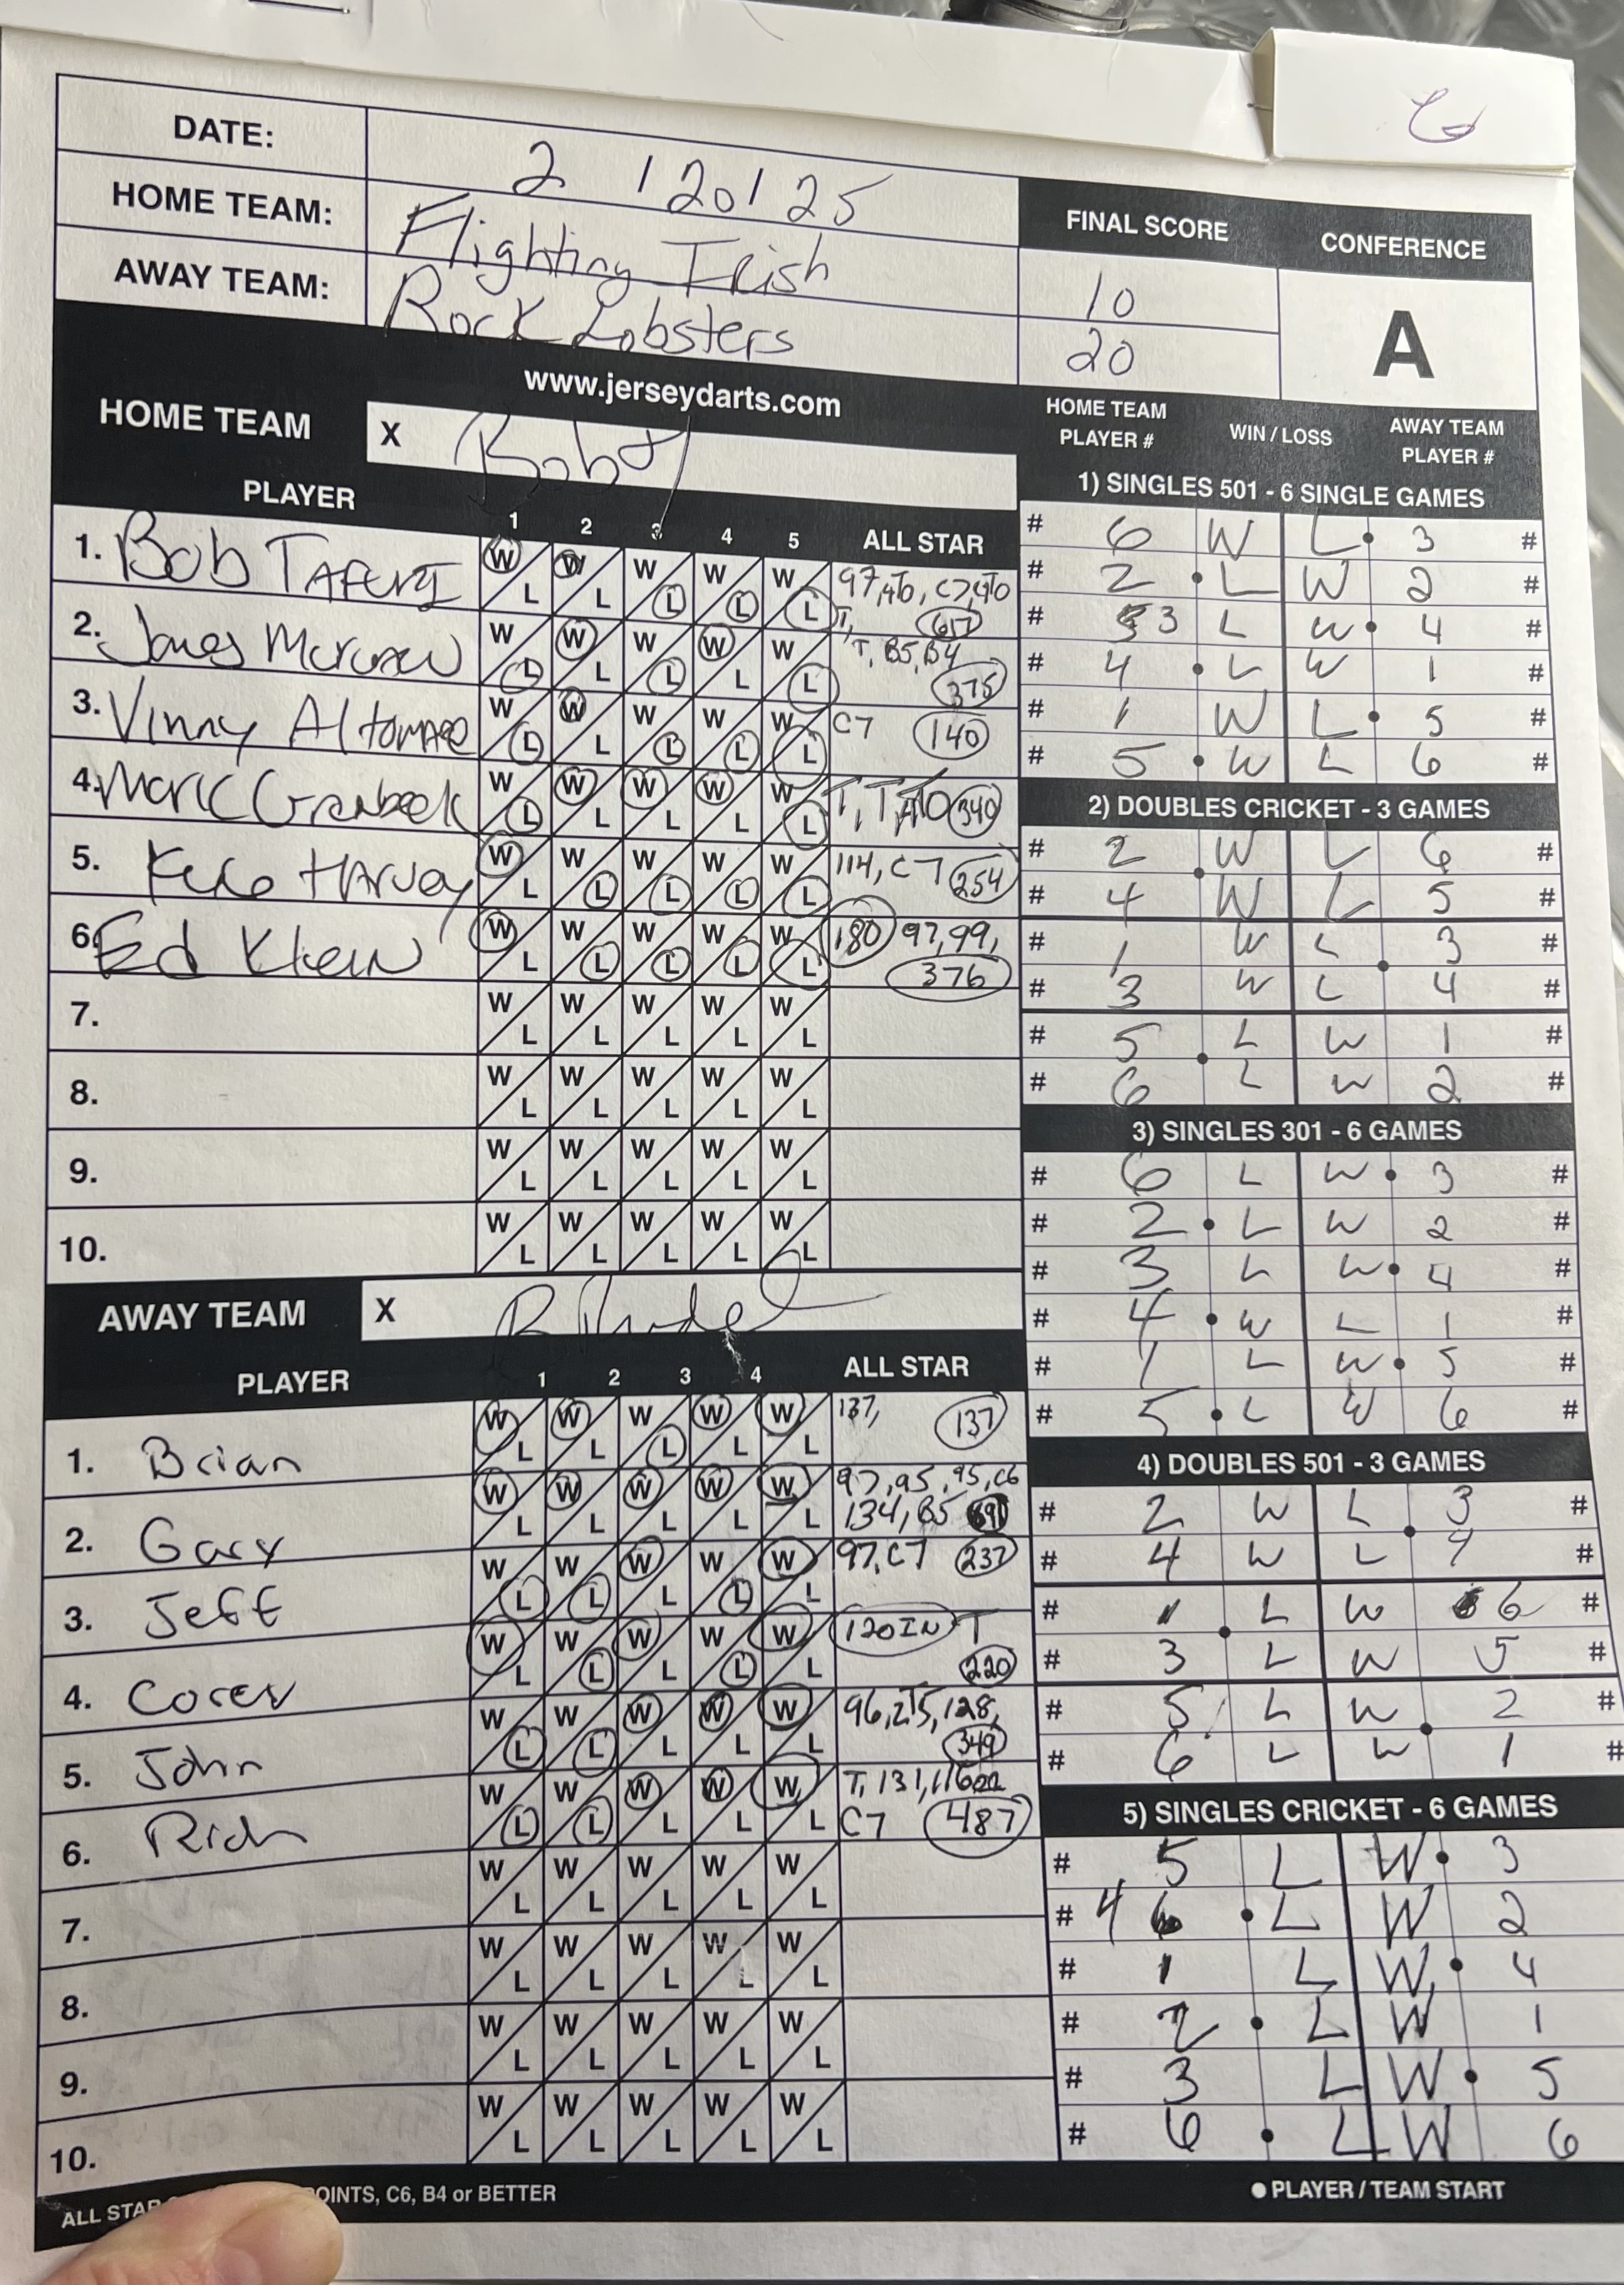 DATE: 2 / 20 / 25
HOME TEAM: Flighting Irish
AWAY TEAM: Rock Lobsters
FINAL SCORE CONFERENCE
10
20
A
www.jerseydarts.com
HOME TEAM X
PLAYER 1 2 3 4 5 ALL STAR
1. Bob W L W L W L W L W L 97, C7,
T, 617
2. W L W L W L W L W L T, B5, B4
375
3. Vinny W L W L W L W L W L C7 140
4. W L W L W L W L W L T, T, 340
5. Harvey W L W L W L W L W L 114, C7 254
6. Ed Klein W L W L W L W L W L 180 97, 99,
376
7. W L W L W L W L W L
8. W L W L W L W L W L
9. W L W L W L W L W L
10. W L W L W L W L W L
AWAY TEAM X
PLAYER 1 2 3 4 ALL STAR
1. Brian W L W L W L W L W L 137, 137
2. Gary W L W L W L W L W L 97, 95, 95, C6
134, B5
3. Jeff W L W L W L W L W L 97, C7 237
4. Corey W L W L W L W L W L 120 IN T
220
5. John W L W L W L W L W L 96, 128,
349
6. Rich W L W L W L W L W L T, 131,
C7 487
7. W L W L W L W L W L
8. W L W L W L W L W L
9. W L W L W L W L W L
10. W L W L W L W L W L
ALL STAR POINTS, C6, B4 or BETTER
HOME TEAM PLAYER # WIN / LOSS AWAY TEAM PLAYER #
1) SINGLES 501 - 6 SINGLE GAMES
# 6 W L 3 #
# 2 L W 2 #
# 3 L W 4 #
# 4 L W 1 #
# 1 W L 5 #
# 5 W L 6 #
2) DOUBLES CRICKET - 3 GAMES
# 2 W L 6 #
# 4 W L 5 #
# 1 W L 3 #
# 3 W L 4 #
# 5 L W 1 #
# 6 L W 2 #
3) SINGLES 301 - 6 GAMES
# 6 L W 3 #
# 2 L W 2 #
# 3 L W 4 #
# 4 W L 1 #
# 1 L W 5 #
# 5 L W 6 #
4) DOUBLES 501 - 3 GAMES
# 2 W L 3 #
# 4 W L 4 #
# 1 L W 6 #
# 3 L W 5 #
# 5 L W 2 #
# 6 L W 1 #
5) SINGLES CRICKET - 6 GAMES
# 5 L W 3
# 4 L W 2
# 1 L W 4
# 2 L W 1
# 3 L W 5
# 6 L W 6
● PLAYER / TEAM START